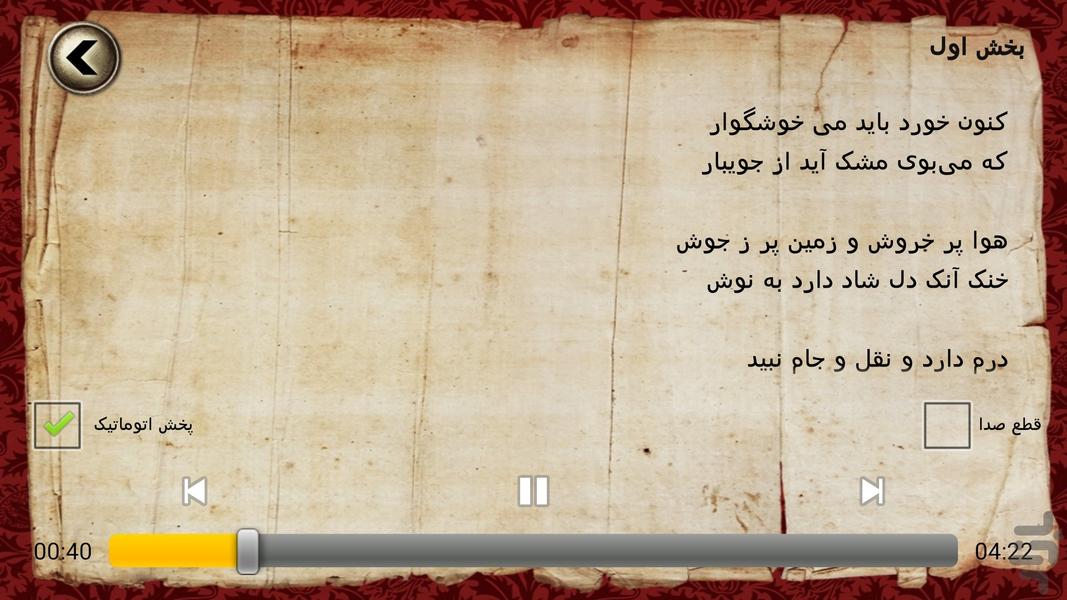 بخش اول
کنون خورد باید می خوشگوار
که می‌بوی مشک آید از جویبار
هوا پر خروش و زمین پر ز جوش
خنک آنک دل شاد دارد به نوش
درم دارد و نقل و جام نبید
قطع صدا
پخش اتوماتیک
00:40
04:22